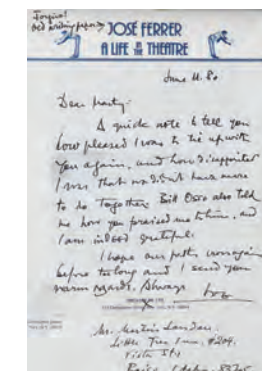 Forgive!
Old writing paper
JOSÉ FERRER
A LIFE IN THE THEATRE
June 11. 80
Dear Marty-
A quick note to tell you
how pleased I was to tie up with
you again, and how disappointed
I was that we didn't have more
to do together. Bill Osco also told
me how you praised me to him, and
I am indeed grateful.
I hope our paths cross again
before too long and I send you
warm regards. Always
Mr. Martin Landau
Little Tree Inn, #204.
Vista St.
Boise, Idaho.